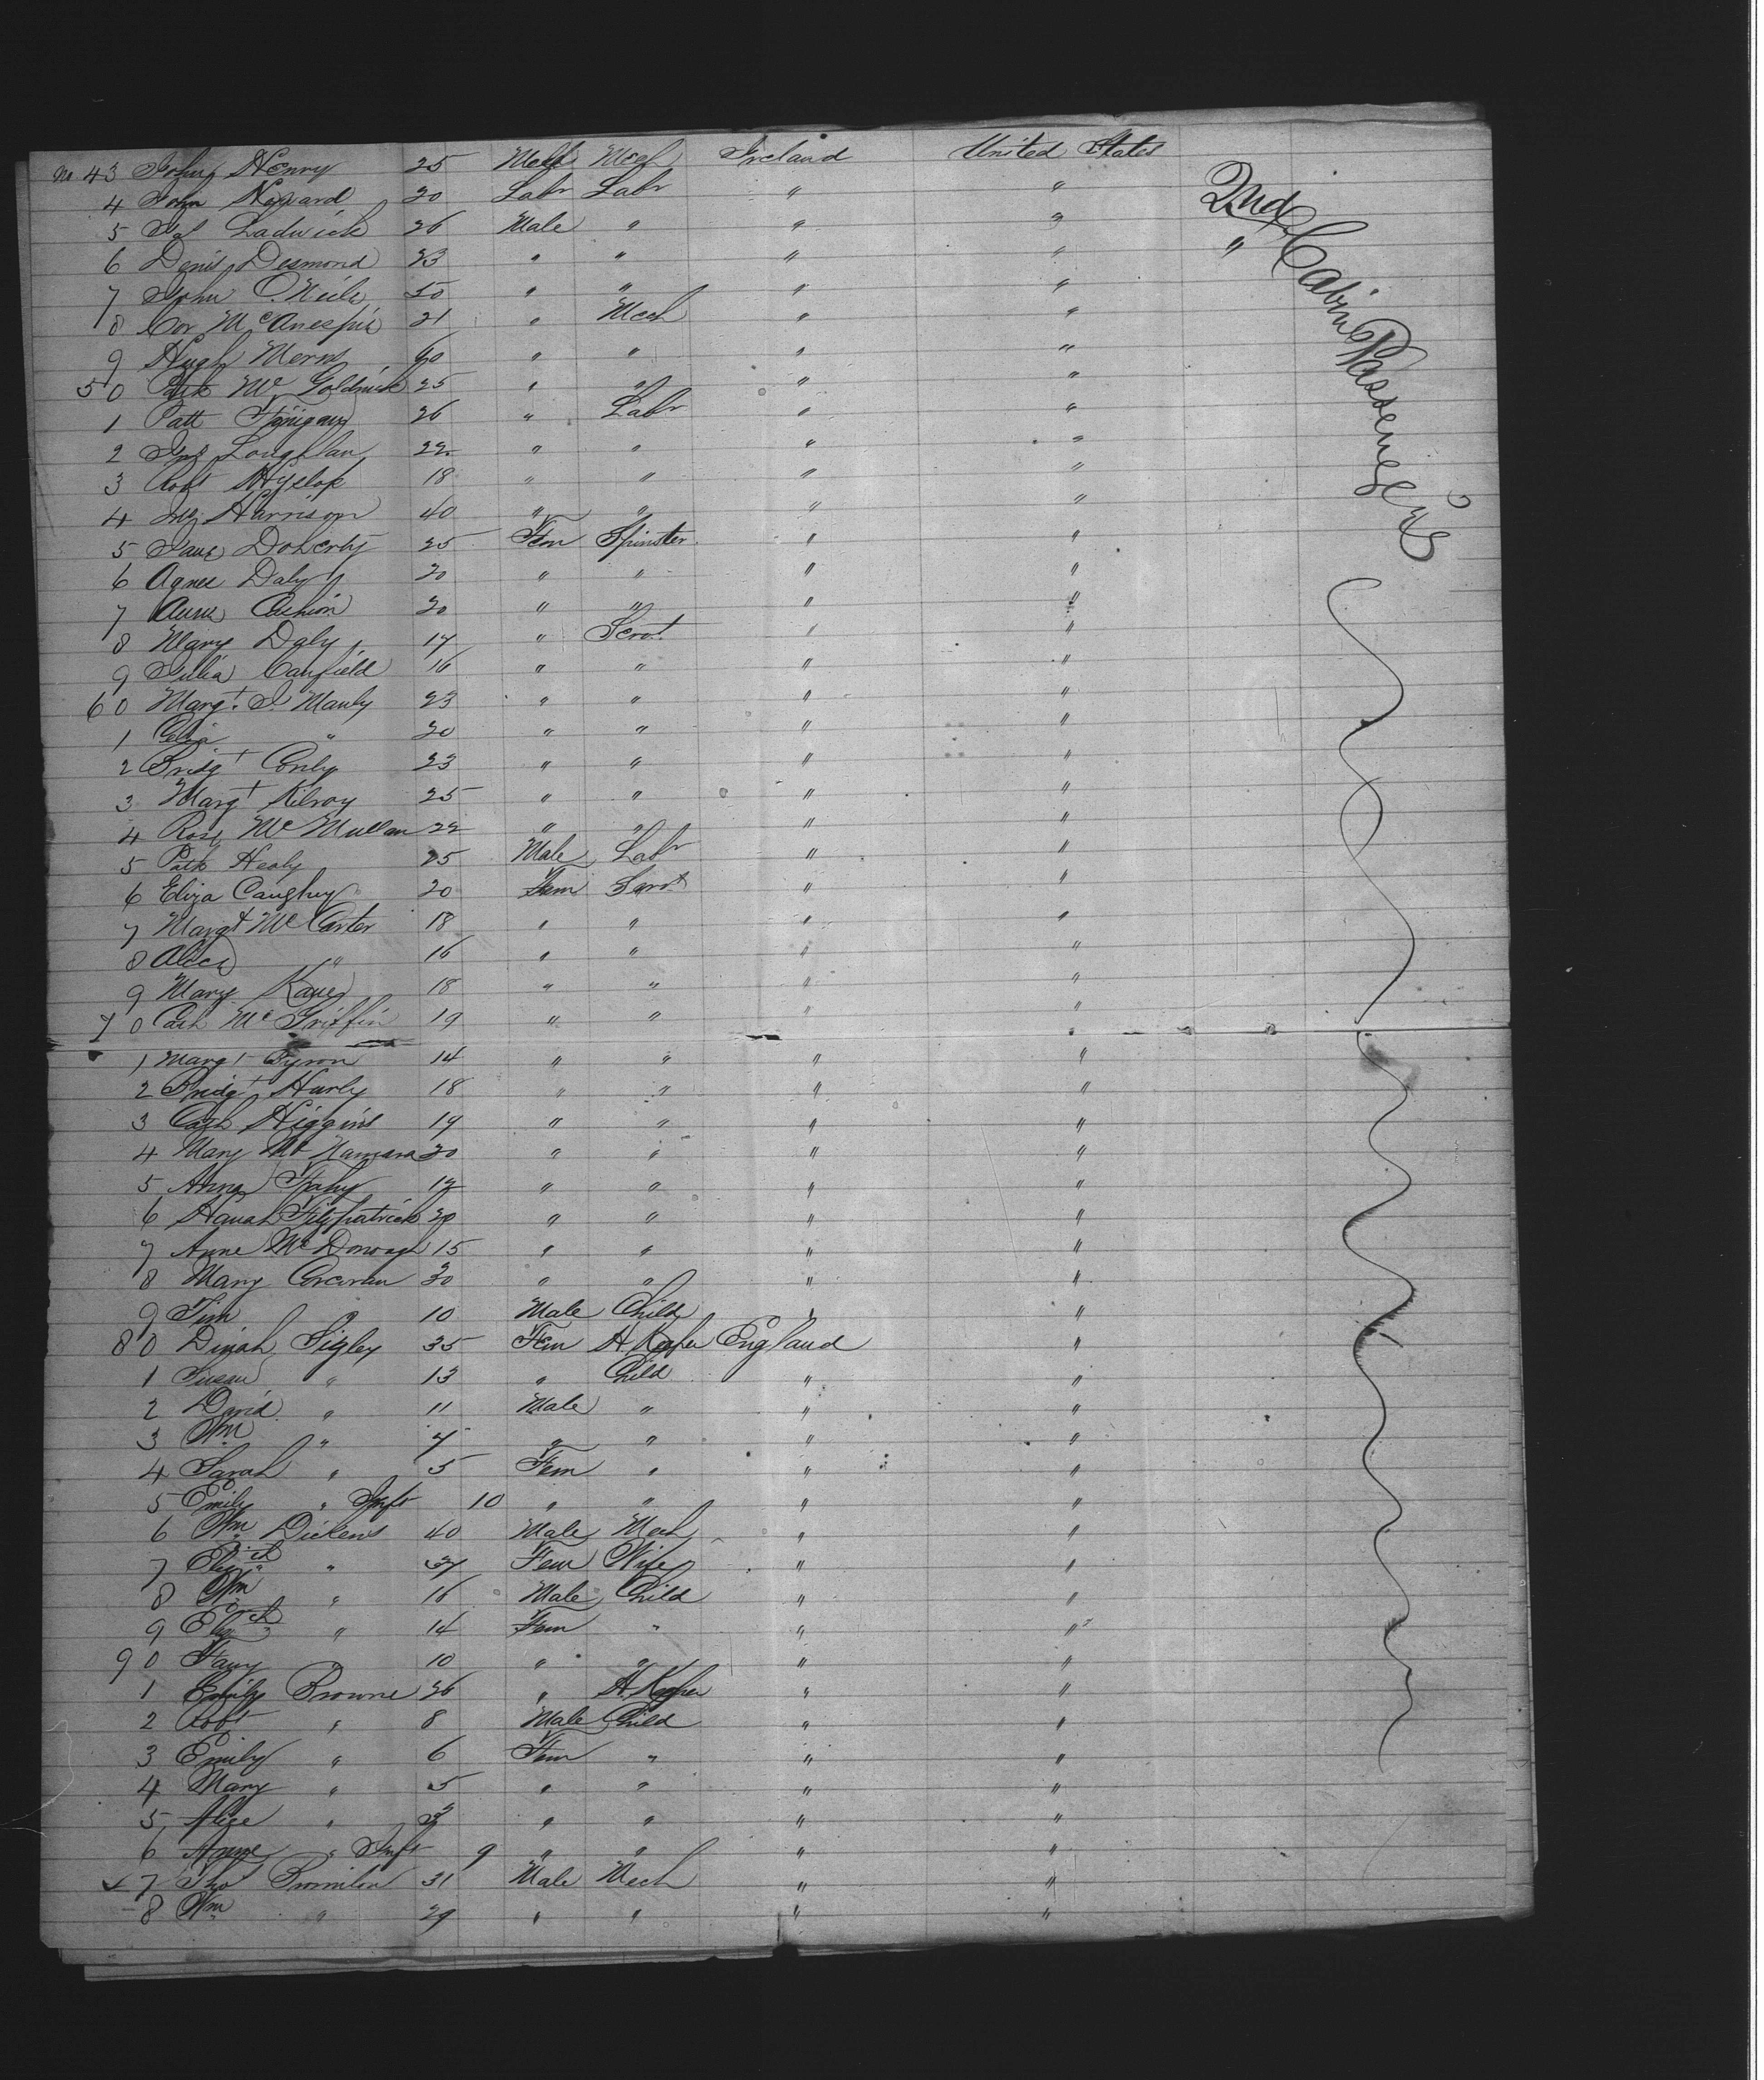 No 43 John Henry 25 Male Mech Ireland United States
4 John 20 Labr Labr " "
5 Ladwick 26 Male " " "
6 Denis Desmond 23 " " " "
7 John O.Neile 50 " " " "
8 Cor McAnespie 21 " Mech " "
9 Hugh 40 " " " "
50 Patk Mc Goldrick 25 " " " "
1 Patt Finigan 26 " Labr " "
2 Jno Loughlan 22 " " " "
3 Robt Hyslop 18 " " " "
4 Harrison 40 " " " "
5 Jane Doherty 25 Fem Spinster " "
6 Agnes Daly 20 " " " "
7 Anne Cashion 20 " " " "
8 Mary Daly 17 " Servt " "
9 Julia Canfield 16 " " " "
60 Margt. J. Manly 23 " " " "
1 Celia " 20 " " " "
2 Bridgt Conly 23 " " " "
3 Margt Kilroy 25 " " " "
4 Rose Mc Mullan 22 " " " "
5 Patk Healy 25 Male Labr " "
6 Eliza Caughey 20 Fem Servt " "
7 Margt McCarter 18 " " " "
8 Alice " 16 " " " "
9 Mary Kane 18 " " " "
70 Cath Mc Griffin 19 " " " "
1 Margt Byron 14 " " " "
2 Bridgt Hurly 18 " " " "
3 Cath Higgins 19 " " " "
4 Mary Mc Namara 20 " " " "
5 Anna Fahy " " " "
6 Hanah Fitzpatrick 20 " " " "
7 Anne McDonough 15 " " " "
8 Mary Corcoran 30 " " " "
9 Tim " 10 Male Child " "
80 Dinah Sigley 35 Fem H.Keeper England "
1 Susan " 13 " Child " "
2 David " 11 Male " " "
3 Wm " 7 " " " "
4 Sarah " 5 Fem " " "
5 Emily " Inft 10 " " " "
6 Wm Dickens 40 Male Mech " "
7 Elizth " 37 Fem Wife " "
8 Wm " 16 Male Child " "
9 Elizth " 14 Fem " " "
90 Fany " 10 " " " "
1 Emily Browne 26 " H.Keeper " "
2 Robt " 8 Male Child " "
3 Emily " 6 Fem " " "
4 Mary " 5 " " " "
5 Alice " " " " "
6 Anne " Inft 9 " " " "
7 Thos 31 Male Mech " "
8 Wm " 29 " " " "
2nd Cabin Passengers
"